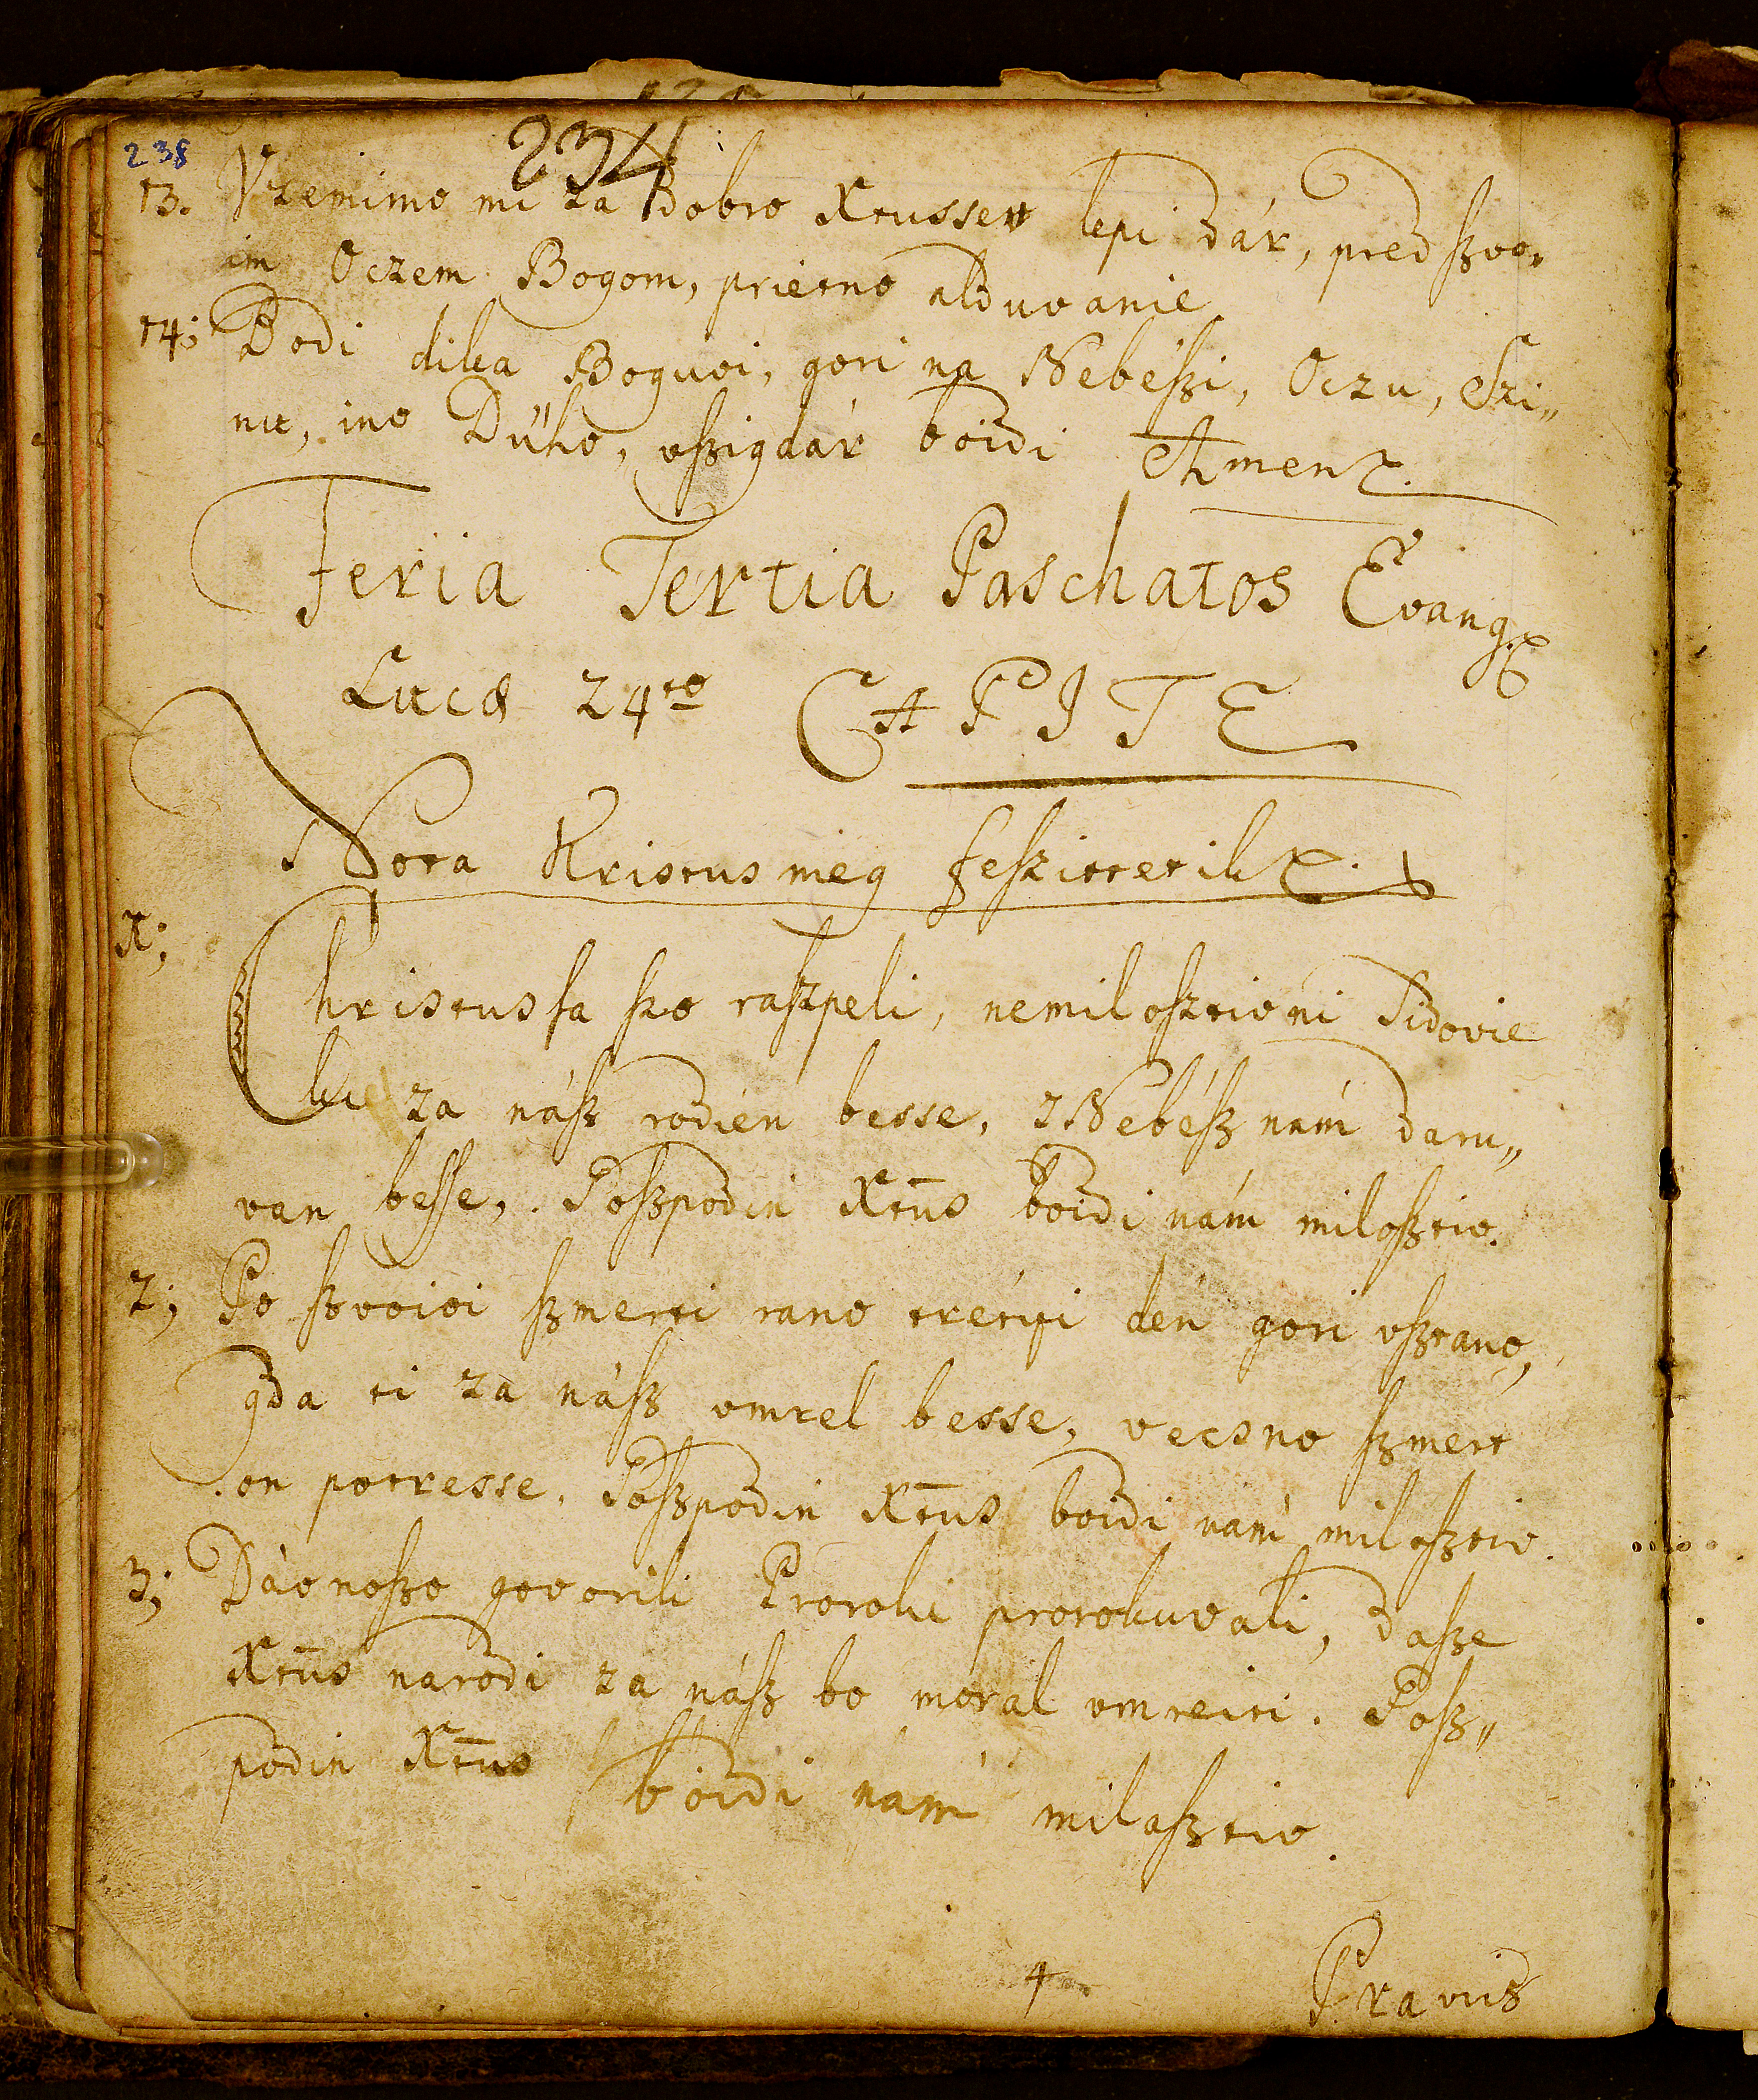 238
234
13. Vzemimo mi za dobro Xtussev lepi dár, pred ßvo„
im Oczem Bogom, prietno alduvanie
14; Bodi dika Boguvi, gori na Nebéßi, Oczu, Szi„
nu, ino Dűho, vßigdár boidi Amen.
Feria Tertia Paschatos Evang.
Lucæ 24to CAPITE
Nota Kristus meg feßittetik.
1;
Christusſa ßo raßpeli, nemiloßtivni Sidovie
ki za náß rodién besse, i Nebéß nám daru„
van beſſe, Goßpodin Xt̄us boidi nám miloßtiv.
2; Po ßvoioi ßmerti rano trétyi dén gori vßtano,
gda ti za náß vmrel besse, vecsno ßmert
on potresse, Goßpodin Xt̄us boidi nám miloßtiv.
3; Dávnoßo govorili Proroki prorokuvali, daße
Xt̄us narodi za náß bo moral vmreiti. Goß„
podin Xt̄us boidi nám miloßtiv.
4 Pravis